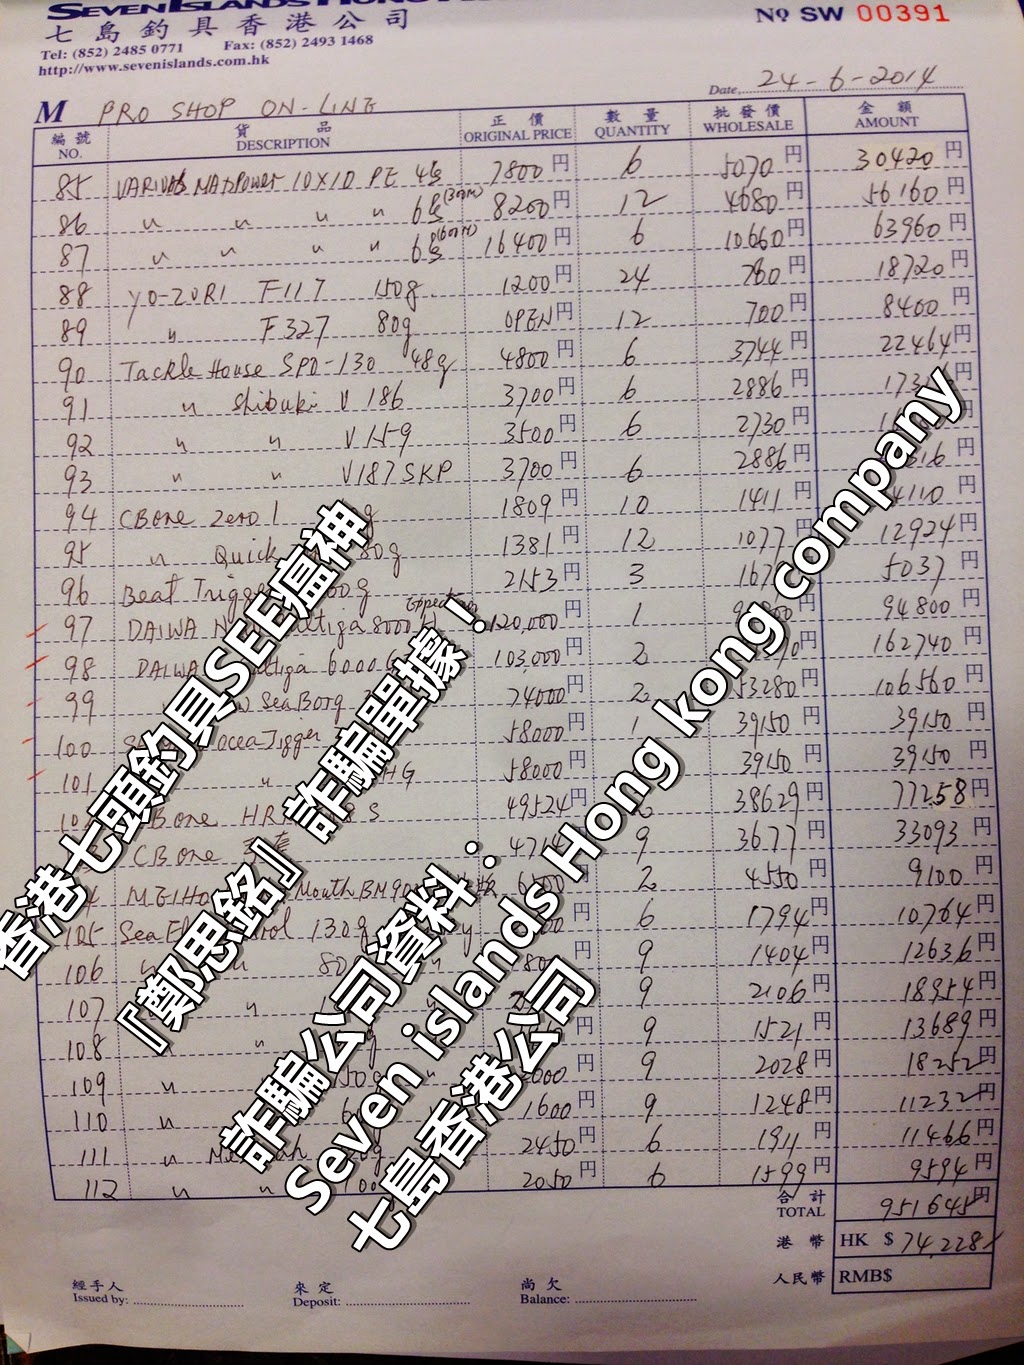 SEVEN ISLANDS HONG
七島釣具香港公司
Tel: (852) 2485 0771 Fax: (852) 2493 1468
http://www.sevenislands.com.hk
No SW 00391
Date, 24-6-2014
M PRO SHOP ON-LINE
編號 貨品 正價 數量 批發價 金額
NO. DESCRIPTION ORIGINAL PRICE QUANTITY WHOLESALE AMOUNT
85 VARIVAS MAXPOWER 10X10 PE 4号 7800円 6 5070円 30420円
86 〃 〃 〃 〃 6号(300M) 8200円 12 4680円 56160円
87 〃 〃 〃 〃 6号(600M) 16400円 6 10660円 63960円
88 YO-ZURI F117 150g 1200円 24 780円 18720円
89 〃 F327 80g OPEN円 12 700円 8400円
90 Tackle House SPD-130 48g 4800円 6 3744円 22464円
91 〃 Shibuki V186 3700円 6 2886円 円
92 〃 〃 V159 3500円 6 2730円
93 〃 〃 V187 SKP 3700円 6 2886円 円
94 CB One Zero 1 g 1809円 10 1411円 円
95 〃 Quick 80g 1381円 12 1077円 12924円
96 Beat 2153円 3 5037円
97 DAIWA 8000H 120,000円 1 94800円
98 DAIWA 6000 103,000円 2 162740円
99 SeaBorg 74000円 2 53280円 106560円
100 Ocea Jigger 58000円 1 39150円 39150円
101 〃 HG 58000円 39150円 39150円
CB One HR S 49524円 2 38629円 77258円
CB One 4714円 9 3677円 33093円
MEIHO Mouth BM 2 4550円 9100円
105 130g 6 1794円 10764円
106 〃 〃 80 9 1404円 12636円
107 〃 9 2106円 18954円
108 〃 〃 9 1521円 13689円
109 〃 150g 9 2028円 18252円
110 〃 1600円 9 1248円 11232円
111 〃 2450円 6 1911円 11466円
112 〃 〃 2050円 6 1599円 9594円
合計 TOTAL 951645円
港幣 HK $ 74,228/
人民幣 RMB$
經手人 來定 尚欠
Issued by: Deposit: Balance:
香港七頭釣具SEE瘟神
『鄭思銘』詐騙單據！
詐騙公司資料：
Seven islands Hong kong company
七島香港公司